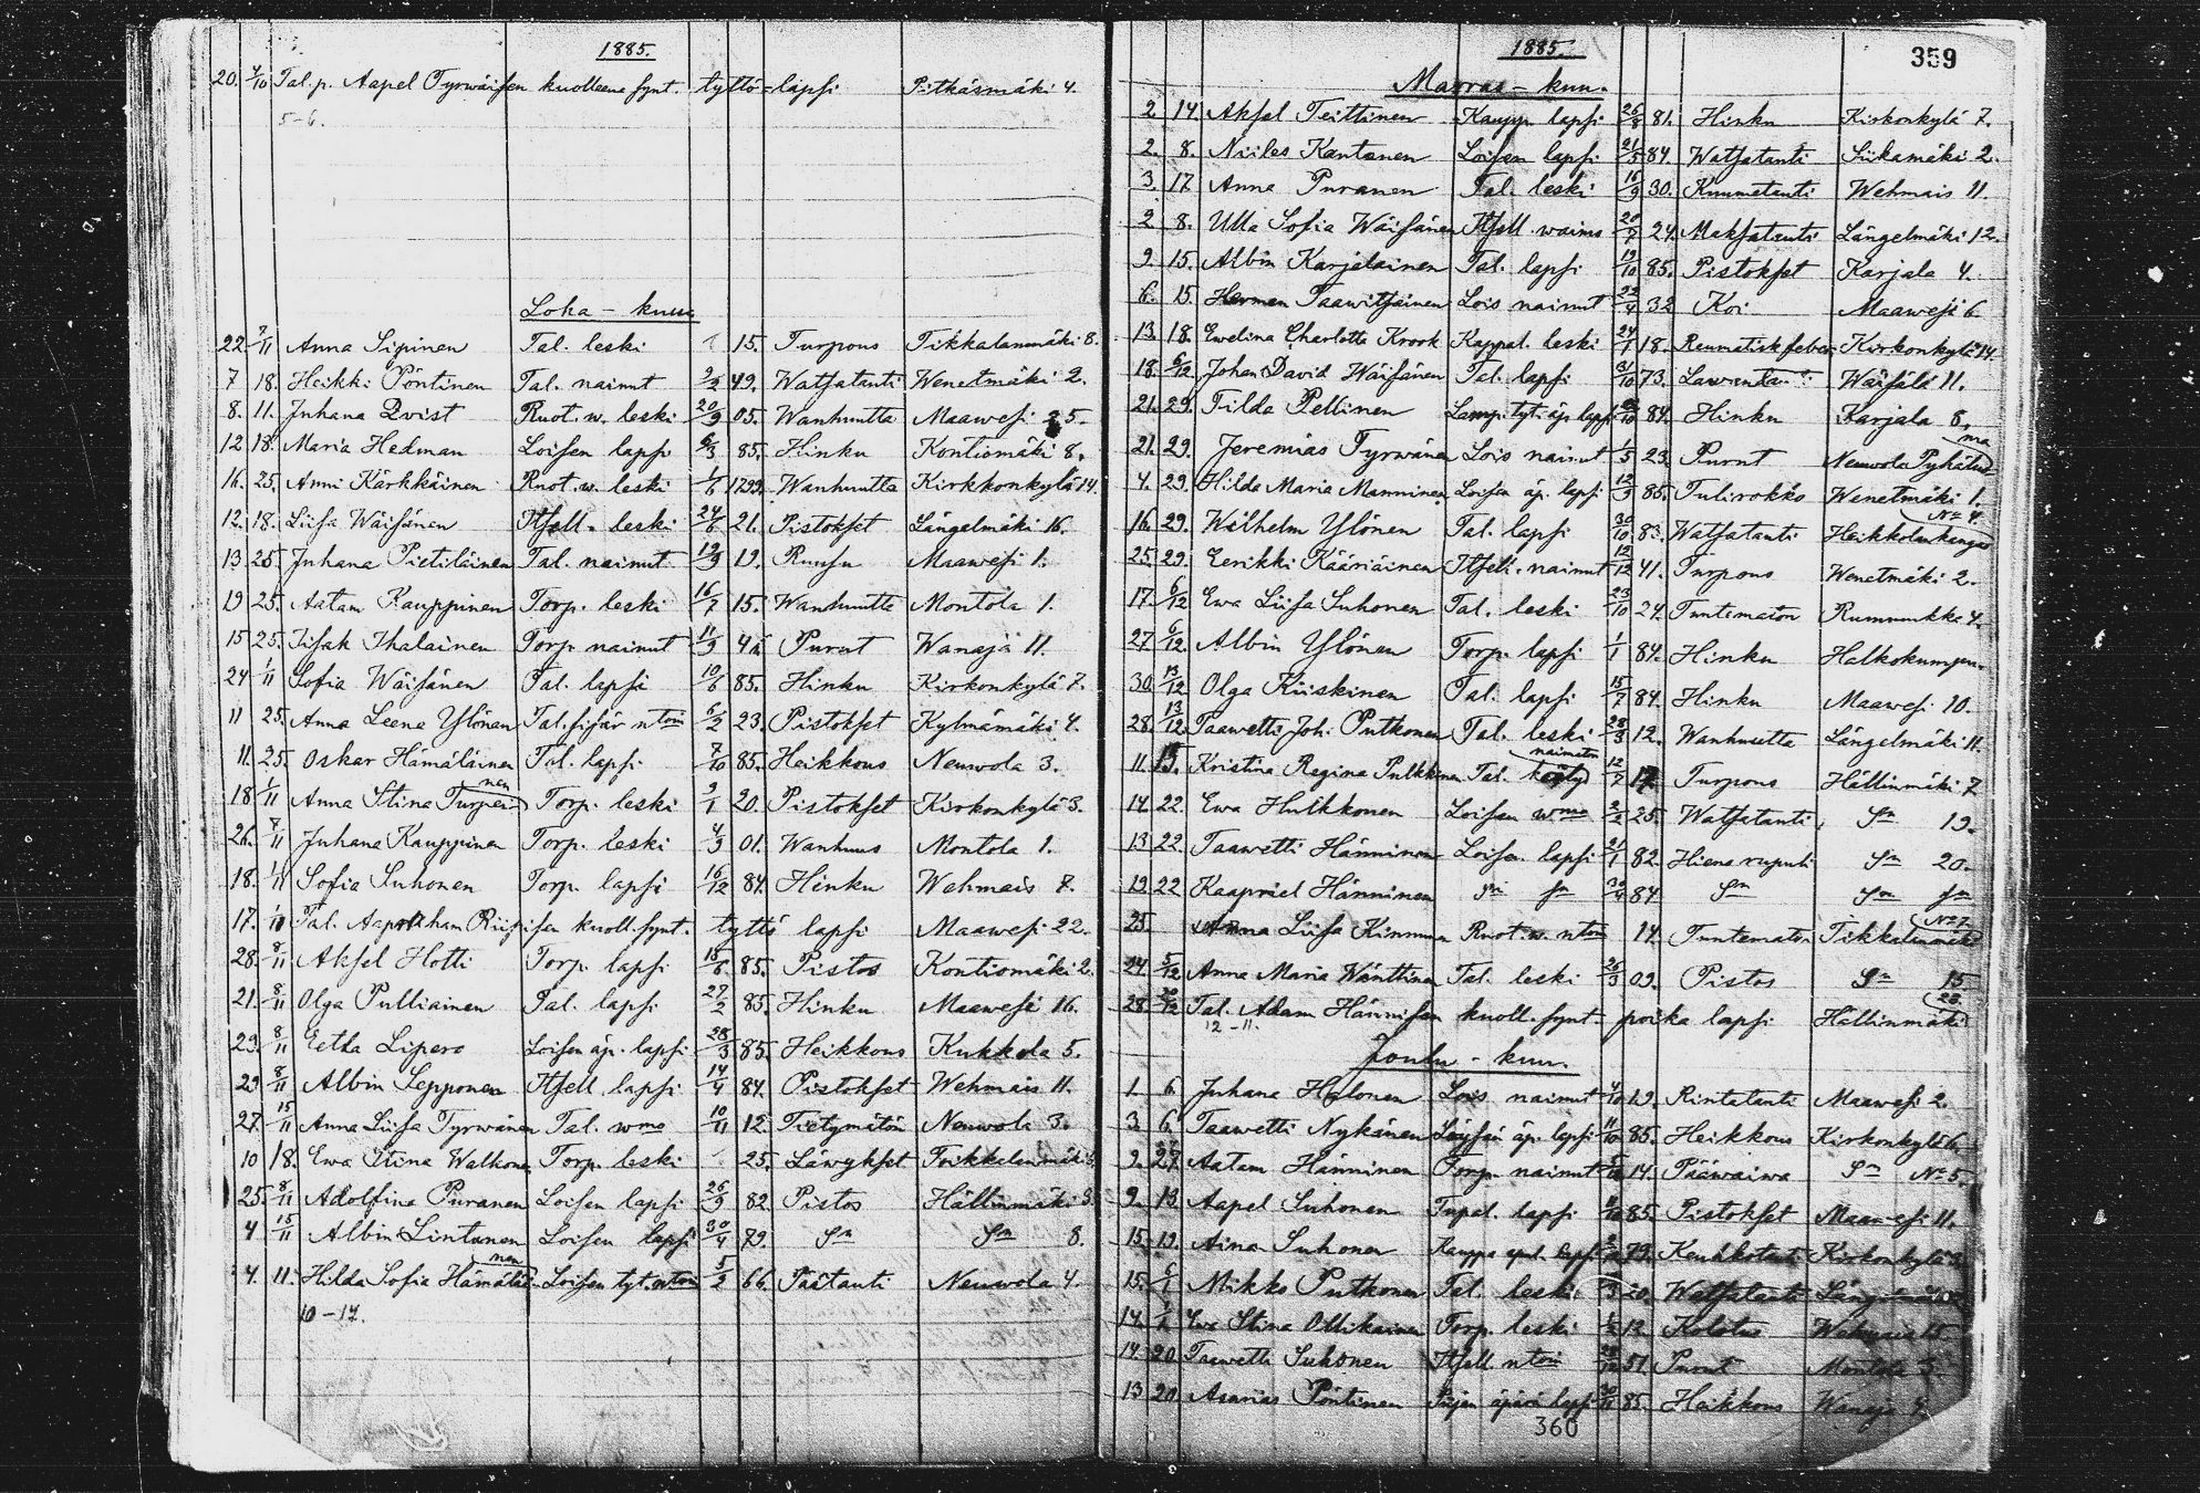 1885.
20. 4/10 Tal. p. Aapel Tyrwäisen kuolleena synt. tyttö-lapsi Pitkäsmäki 4.
5-6.
Loka-kuu
22. 7/11 Anna Sipinen Tal. leski 15. Turpous Tikkalanmäki 8.
7 18. Heikki Pöntinen Tal. nainut 49. Watsatauti Wenetmäki 2.
8. 11. Juhana Qvist Ruot. w. leski 20/9 05. Wanhuutta Maawesi 25.
12 18. Maria Hedman Loisen lapsi 6/3 85. Hinku Kontiomäki 8.
16. 25. Anni Kärkkäinen Ruot. w. leski 1/6 1799. Wanhuutta Kirkkonkylä 14.
12. 18. Liisa Wäisänen Itsell. leski 24/6 21. Pistokset Längelmäki 16.
13 25. Juhana Pietiläinen Tal. nainut 19/9 19. Ruusu Maawesi 1.
19 25. Aatam Kauppinen Torp. leski 16/7 15. Wanhuutta Montola 1.
15 25. Iisak Ihalainen Torp. nainut 11/9 Purut Wanaja 11.
24 1/11 Sofia Wäisänen Tal. lapsi 10/6 85. Hinku Kirkonkylä 7.
11 25. Anna Leena Ylönen Tal. sisar ntoin 6/2 23. Pistokset Kylmämäki 4.
11. 25. Oskar Hämäläinen Tal. lapsi 7/10 85. Heikkous Neuwola 3.
18 1/11 Anna Stina Turpeinen Torp. leski 9/1 20. Pistokset Kirkonkylä 3.
26. 7/11 Juhana Kauppinen Torp. leski 4/9 01. Wanhuus Montola 1.
18. 1/11 Sofia Suhonen Torp. lapsi 16/12 84. Hinku Wehmais 7.
17. Tal. kuoll. synt. tyttö lapsi Maawesi 22.
28. 8/11 Aksel Hotti Torp. lapsi 85. Pistos Kontiomäki 2.
21. 8/11 Olga Pulliainen Tal. lapsi 27/2 85. Hinku Maawesi 16.
23. 8/11 Eetla Lipero Loisen äp. lapsi 28/3 85. Heikkous Kukkola 5.
29 8/11 Albin Lepponen Itsell. lapsi 14/4 84. Pistokset Wehmais 11.
27. 15/11 Anna Liisa Tyrwänen Tal. wmo 10/11 12. Tietymätön Neuwola 3.
10 18. Ewa Stina Walkonen Torp. leski 25. Läwykset Tikkalanmäki
25. 8/11 Adolfina Puranen Loisen lapsi 26/9 82. Pistos Hällinmäki 3.
4 15/11 Albin Lintunen Loisen lapsi 30/4 79. Sn Sn 8.
4. 11. Hilda Sofia Hämäläinen Loisen tyt. ntoin 5/2 66. Päätauti Neuwola 4.
10-17.
1885.
359
Marras-kuu.
2 14. Aksel Teittinen Kaupp. lapsi 26/8 81. Hinku Kirkonkylä 7.
2. 8. Niiles Kantanen Loisen lapsi 21/5 84. Watsatauti Siikamäki 2.
3. 17 Anna Puranen Tal. leski 16/9 30. Kuumetauti Wehmais 11.
2 8. Ulla Sofia Wäisänen Itsell. waimo 20/7 24. Maksatauti Längelmäki 12.
9. 15. Albin Karjalainen Tal. lapsi 19/10 85. Pistokset Karjala 4.
6. 15. Herman Taawitsainen Lois nainut 22/4 32 Koi Maawesi 6
13. 18. Ewelina Charlotta Krook Kappal. leski 24/1 18. Reumatiskfeber Kirkonkylä 14
18. 6/12 Johan David Wäisänen Tal. lapsi 31/10 73. Wäisälä 11.
21. 29. Tilda Pellinen Lamp. tyt. äp. lapsi 84. Hinku Karjala 8.
21. 29. Jeremias Tyrwänen Lois nainut 1/5 23. Purut Neuwola
4. 29. Hilda Maria Manninen Loisen äp. lapsi 12/9 85. Tulirokko Wenetmäki 1.
16. 29. Wilhelm Ylönen Tal. lapsi 30/10 83. Watsatauti Heikkolankangas No 4.
25. 29. Eerikki Kääriäinen Itsell. nainut 12/12 41. Turpous Wenetmäki 2.
17. 6/12 Ewa Liisa Suhonen Tal. leski 23/10 24. Tuntematon Rummukka 4.
27 6/12. Albin Ylönen Torp. lapsi 1/1 84. Hinku
30. 13/12 Olga Kiiskinen Tal. lapsi 15/7 84. Hinku Maawesi 10.
28. 13/12. Taawetti Joh. Putkonen Tal. leski 28/3 12. Wanhuutta Längelmäki 11.
11. 15. Kristina Regina Pulkkinen Tal. naimaton 12/7 17. Turpous Hällinmäki 7
14. 22. Ewa Hulkkonen Loisen wmo 2/2 25. Watsatauti Sn 19.
13 22. Taawetti Hänninen Loisen lapsi 21/1 82. Hiena rupuli Sn 20.
19. 22 Kaapriel Hänninen Sn Sn 84 Sn Sn Sn
25. Anna Liisa Kinnunen Ruot. w. ntoin 14. Tuntematon Tikkalanmäki No 7.
24. 5/12 Anna Maria Wänttinen Tal. leski 26/3 09. Pistos Sn 15
28. 20/12 Tal. Adam Hännisen kuoll. synt. poika lapsi Hällinmäki 23.
12-11.
Joulu-kuu.
1. 6. Juhana Halonen Lois nainut 4/10 19. Rintatauti Maawesi 2.
3. 6. Taawetti Nykänen Loisen äp. lapsi 11/10 85. Heikkous Kirkonkylä 6.
9. 27. Aatam Hänninen Torp. nainut 14. Pääwaiwa Sn No 5.
9. 13. Aapel Suhonen lapsi 85. Pistokset Maawesi 11.
15. 19. Aina Suhonen Kauppa lapsi 79. Keuhkotauti Kirkonkylä 3.
15. 6/1 Mikko Putkonen Tal. leski 20. Watsatauti
14. Ewa Stina Ollikainen Torp. leski 12. Kolotus Wehmais 15.
14. 20 Taawetti Suhonen Itsell. ntoin 51. Purut Montola
13 20. Asarias Pöntinen Piijan äpärä lapsi 85. Heikkous Wanaja 4.
360